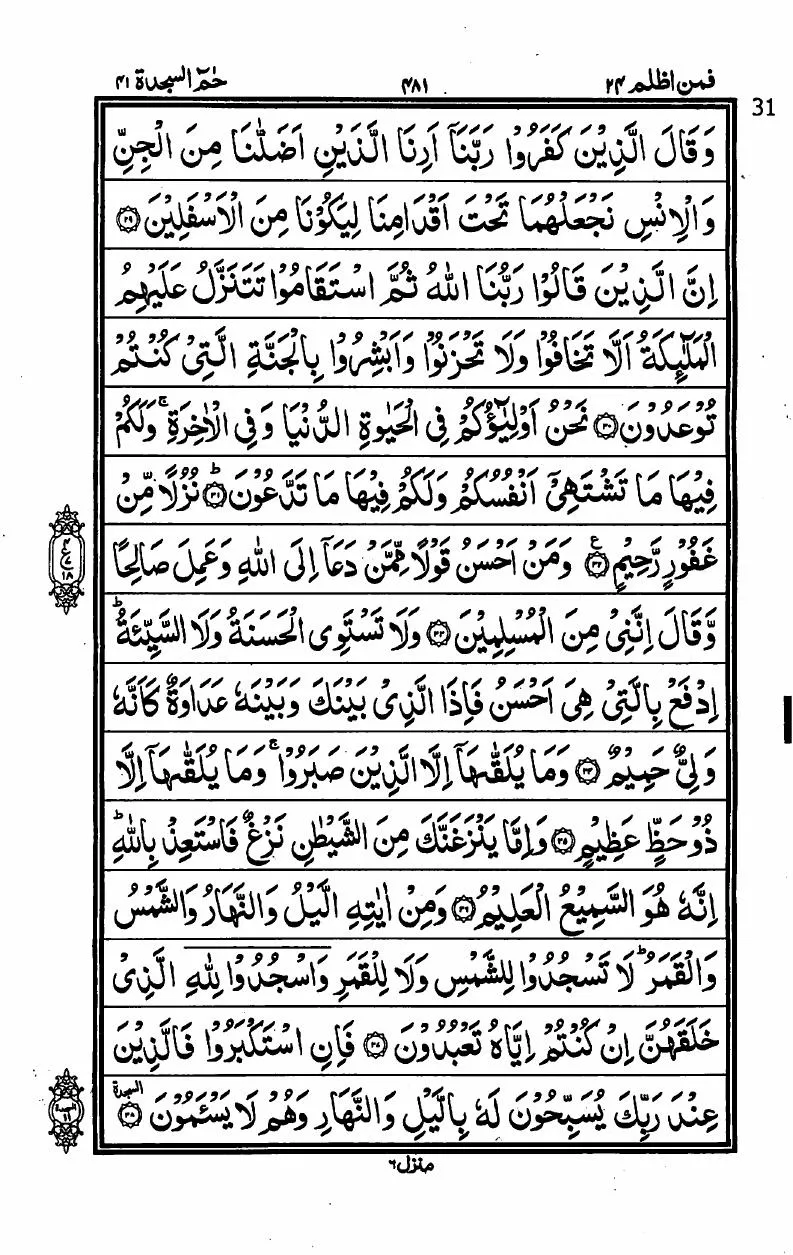 فمن اظلم ۲۴
۴۸۱
حٰمٓ السجدة ۴۱
31
وَقَالَ الَّذِيْنَ كَفَرُوْا رَبَّنَآ اَرِنَا الَّذَيْنِ اَضَلّٰنَا مِنَ الْجِنِّ
وَالْاِنْسِ نَجْعَلْهُمَا تَحْتَ اَقْدَامِنَا لِيَكُوْنَا مِنَ الْاَسْفَلِيْنَ ۝۲۹
اِنَّ الَّذِيْنَ قَالُوْا رَبُّنَا اللّٰهُ ثُمَّ اسْتَقَامُوْا تَتَنَزَّلُ عَلَيْهِمُ
الْمَلٰٓئِكَةُ اَلَّا تَخَافُوْا وَلَا تَحْزَنُوْا وَاَبْشِرُوْا بِالْجَنَّةِ الَّتِيْ كُنْتُمْ
تُوْعَدُوْنَ ۝۳۰ نَحْنُ اَوْلِيٰٓؤُكُمْ فِي الْحَيٰوةِ الدُّنْيَا وَفِي الْاٰخِرَةِ ۚ وَلَكُمْ
فِيْهَا مَا تَشْتَهِيْٓ اَنْفُسُكُمْ وَلَكُمْ فِيْهَا مَا تَدَّعُوْنَ ۝۳۱ؕ نُزُلًا مِّنْ
غَفُوْرٍ رَّحِيْمٍ ۝۳۲ع وَمَنْ اَحْسَنُ قَوْلًا مِّمَّنْ دَعَآ اِلَى اللّٰهِ وَعَمِلَ صَالِحًا
وَّقَالَ اِنَّنِيْ مِنَ الْمُسْلِمِيْنَ ۝۳۳ وَلَا تَسْتَوِى الْحَسَنَةُ وَلَا السَّيِّئَةُ ؕ
اِدْفَعْ بِالَّتِيْ هِيَ اَحْسَنُ فَاِذَا الَّذِيْ بَيْنَكَ وَبَيْنَهٗ عَدَاوَةٌ كَاَنَّهٗ
وَلِيٌّ حَمِيْمٌ ۝۳۴ وَمَا يُلَقّٰىهَآ اِلَّا الَّذِيْنَ صَبَرُوْا ۚ وَمَا يُلَقّٰىهَآ اِلَّا
ذُوْ حَظٍّ عَظِيْمٍ ۝۳۵ وَاِمَّا يَنْزَغَنَّكَ مِنَ الشَّيْطٰنِ نَزْغٌ فَاسْتَعِذْ بِاللّٰهِ ؕ
اِنَّهٗ هُوَ السَّمِيْعُ الْعَلِيْمُ ۝۳۶ وَمِنْ اٰيٰتِهِ الَّيْلُ وَالنَّهَارُ وَالشَّمْسُ
وَالْقَمَرُ ؕ لَا تَسْجُدُوْا لِلشَّمْسِ وَلَا لِلْقَمَرِ وَاسْجُدُوْا لِلّٰهِ الَّذِيْ
خَلَقَهُنَّ اِنْ كُنْتُمْ اِيَّاهُ تَعْبُدُوْنَ ۝۳۷ فَاِنِ اسْتَكْبَرُوْا فَالَّذِيْنَ
عِنْدَ رَبِّكَ يُسَبِّحُوْنَ لَهٗ بِالَّيْلِ وَالنَّهَارِ وَهُمْ لَا يَسْئَمُوْنَ ۝۳۸ السجدة
ع ۱۸
السجدة ۱۱
منزل ۶